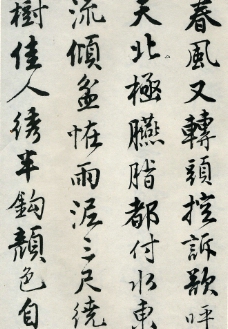 春風又轉頭控訴欲呼
天北極臙脂都付水東
流傾盆怪雨泥三尺繞
樹佳人綉半鈎顏色自